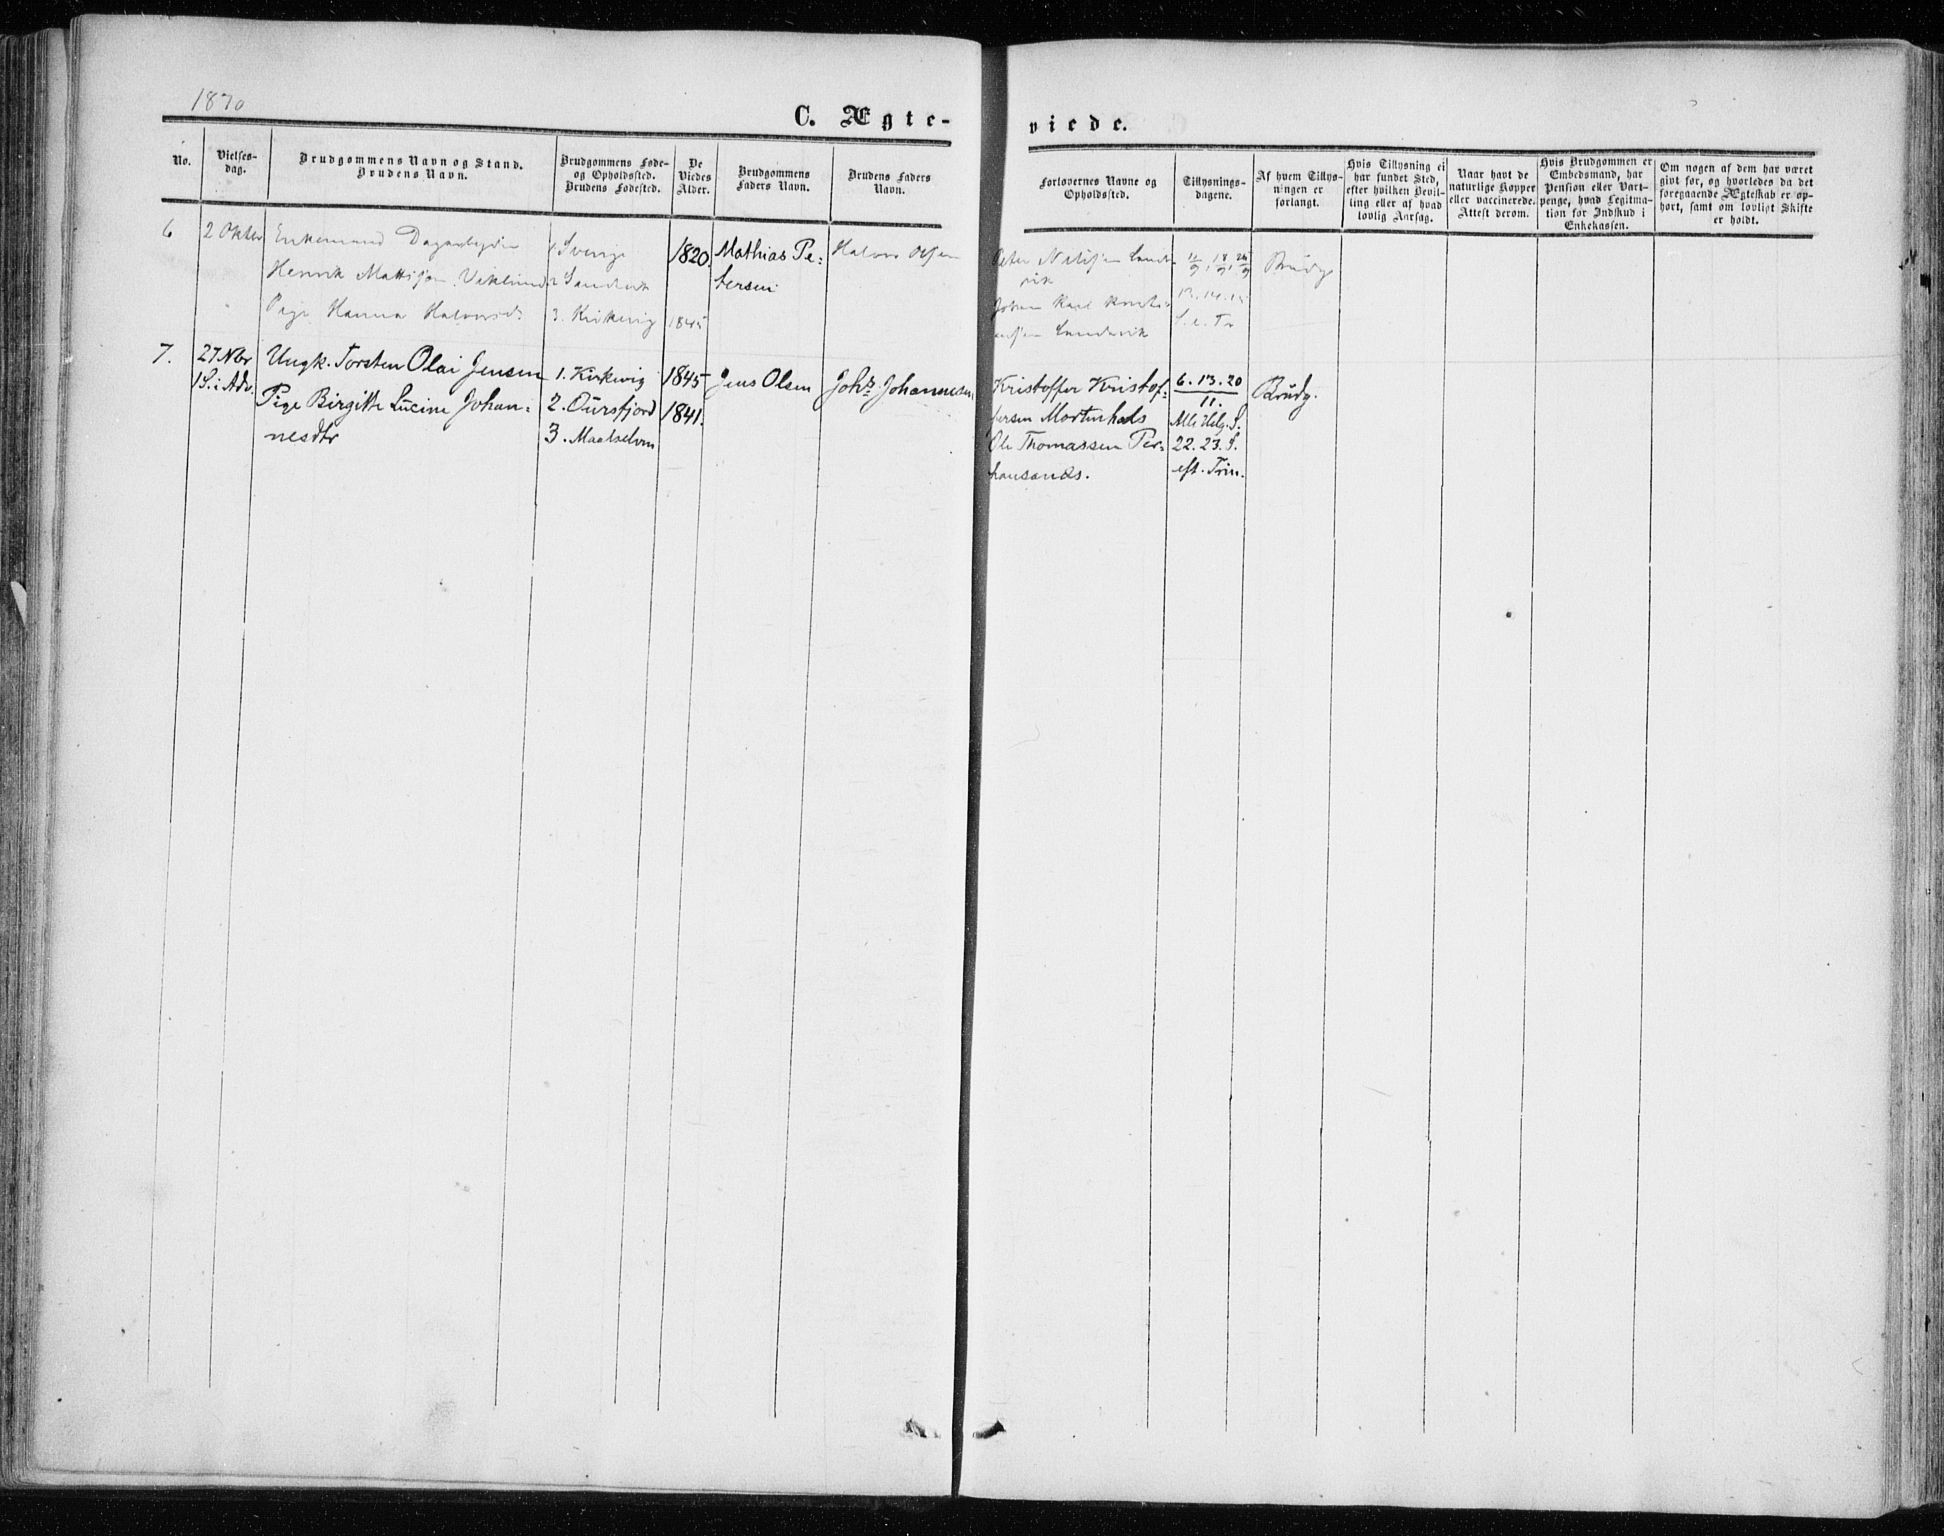 1870
C. Ægte-
viede.
No.
Vielses-
dag.
Brudgommens Navn og Stand.
Brudens Navn.
Brudgommens Føde-
og Opholdssted.
Brudens Fødested.
De
Viedes
Alder.
Brudgommens
Faders Navn.
Brudens Faders
Navn.
Forlovernes Navne og
Opholdssted.
Tillysnings-
dagene.
Af hvem Tillys-
ningen er
forlangt.
Hvis Tillysning ei
har fundet Sted,
efter hvilken Bevil-
ling eller af hvad
lovlig Aarsag.
Naar havt de
naturlige Kopper
eller vaccinerede.
Attest derom.
Hvis Brudgommen er
Embedsmand, har
Pension eller Vart-
penge, hvad Legitima-
tion for Indskud i
Enkekassen.
Om nogen af dem har været
givt før, og hvorledes da det
foregaaende Ægteskab er op-
hørt, samt om lovligt Skifte
er holdt.
6
2 Oktbr
Enkemand Dagarbeider
Henrik Mattissen
Pige Hanna Halvorsd.
1. Sverige
2 Sandvik
3. Kirkevig
1820.
1845
Mathias Pe-
tersen
Halvor Olsen
Peter Nilsen Sand-
vik
Johan Karl
Sandvik
11/9, 18/9, 25/9
13. 14. 15
S. e. Tr
Brudg.
7.
27 Nbr
1 S. i Adv.
Ungk. Torsten Olai Jensen
Pige Birgitte Lucine Johan-
nesdtr
1. Kirkevig
2. Oursfjord
3. Maalselven
1845
1841.
Jens Olsen
Johs Johannesen
Kristoffer Kristof-
fersen Mortenhals
Ole Thomassen Per-
hansanæs.
6. 13. 20
11.
Alle Helg. S.
22. 23. S.
eft. Trin.
Brudg.